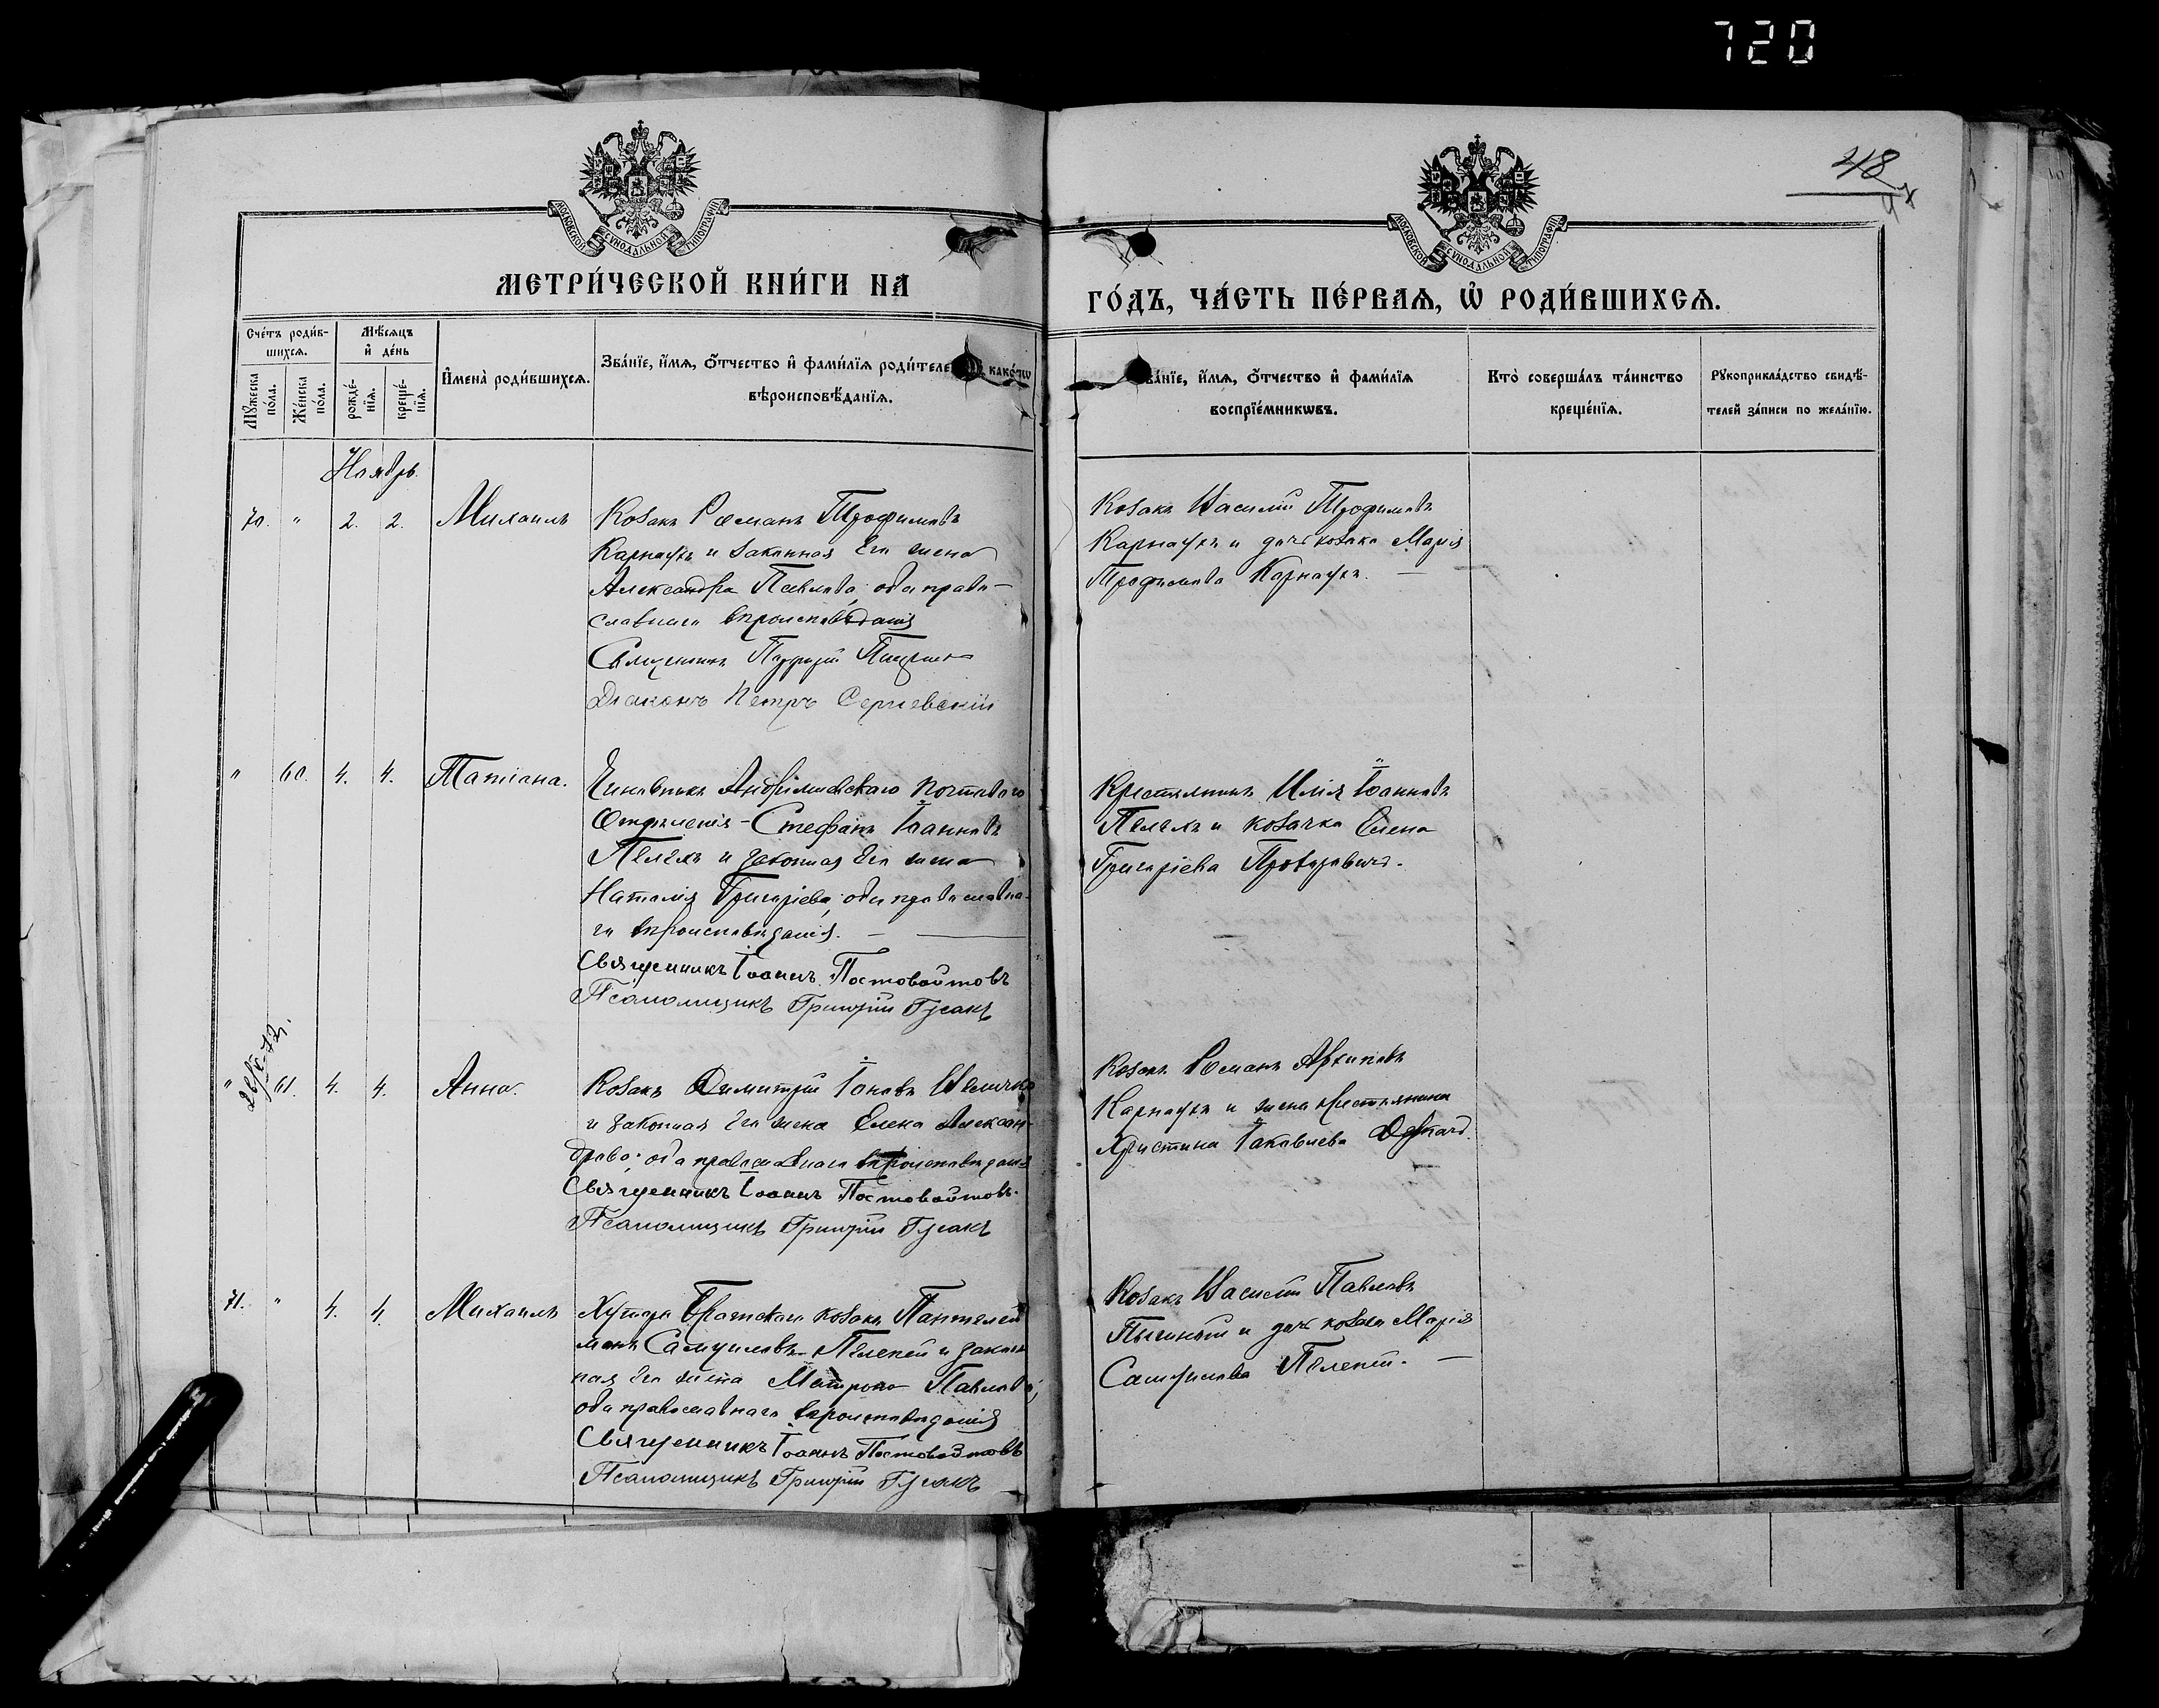 720
48
МОСКОВСКОЙ СѴНОДАЛЬНОЙ ТИПОГРАФІИ
МОСКОВСКОЙ СѴНОДАЛЬНОЙ ТИПОГРАФІИ
МЕТРИ́ЧЕСКОЙ КНИ́ГИ НА
ГО́ДЪ, ЧА́СТЬ ПЕ́РВАѦ, Ѡ҆ РОДИ́ВШИХСѦ.
Сче́тъ роди́в-
шихсѧ.
Мꙋ́жеска по́ла.
Же́нска по́ла.
Мѣ́сѧцъ
и҆ де́нь
рожде́-
нїѧ.
креще́-
нїѧ.
И҆мена̀ роди́вшихсѧ.
Зва́нїе, и҆́мѧ, ѻ҆́тчество и҆ фами́лїѧ роди́теле како́гѡ
вѣроисповѣ́данїѧ.
ва́нїе, и҆́мѧ, ѻ҆́тчество и҆ фами́лїѧ
воспрїе́мникѡвъ.
Кто̀ соверша́лъ та́инство
креще́нїѧ.
Рꙋкоприкла́дство свидѣ́-
телей за́писи по жела́нїю.
Ноябрь
70. " 2. 2. Михаилъ
Козакъ Романъ Трофимовъ
Карнаухъ и законная его жена
Александра Павлова; оба право-
славнаго вѣроисповѣданія
Священникъ
Діаконъ Петръ Сергіевскій
Козакъ Василій Трофимовъ
Карнаухъ и дочь козака Марія
Трофимова Карнаухъ. —
" 60. 4. 4. Татіана.
Чиновникъ Почтоваго
Отдѣленія - Стефанъ Іоанновъ
Пелехъ и законная его жена
Наталія Григоріева; оба православна-
го вѣроисповѣданія. —
Священникъ Іоаннъ Постовойтовъ
Псаломщикъ Григорій Гусакъ
Крестьянинъ Илія Іоанновъ
Пелехъ и козачка Елена
Григоріева
" 61. 4. 4. Анна.
Козакъ Димитрій Іоновъ Величко
и законная его жена Елена Алексан-
дрова; оба православнаго вѣроисповѣданія
Священникъ Іоаннъ Постовойтовъ.
Псаломщикъ Григорій Гусакъ
Козакъ Романъ Архиповъ
Карнаухъ и жена крестьянина
Христина Іаковлева
71. " 4. 4. Михаилъ
Хутора Братскаго козакъ Пантелей
монъ Самуиловъ Пелепей и закон
ная его жена Матрона Павлова;
оба православнаго вѣроисповѣданія
Священникъ Іоаннъ Постовойтовъ
Псаломщикъ Григорій Гусакъ
Козакъ Василій Павловъ
и дочь козака Марія
Самуилова Пелепей. —